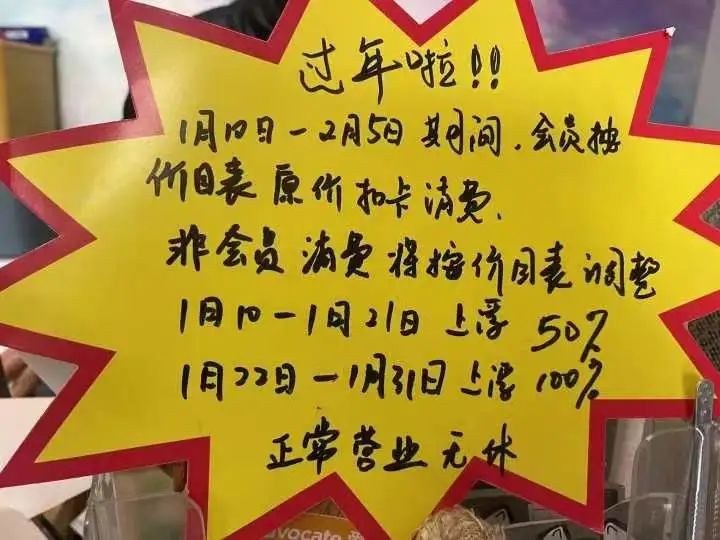 过年啦!!
1月10日-2月5日期间、会员按
价目表原价扣卡消费、
非会员消费将按价目表调整
1月10-1月21日上浮50%
1月22日-1月31日上浮100%
正常营业无休
vocato